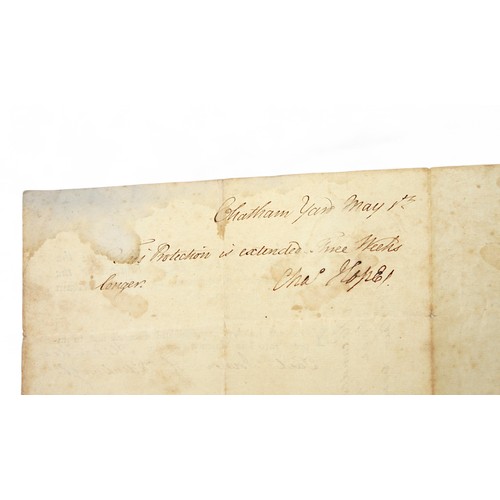 Chatham Yard May 1st
This Protection is extended Three Weeks
longer.
Chas. Hope